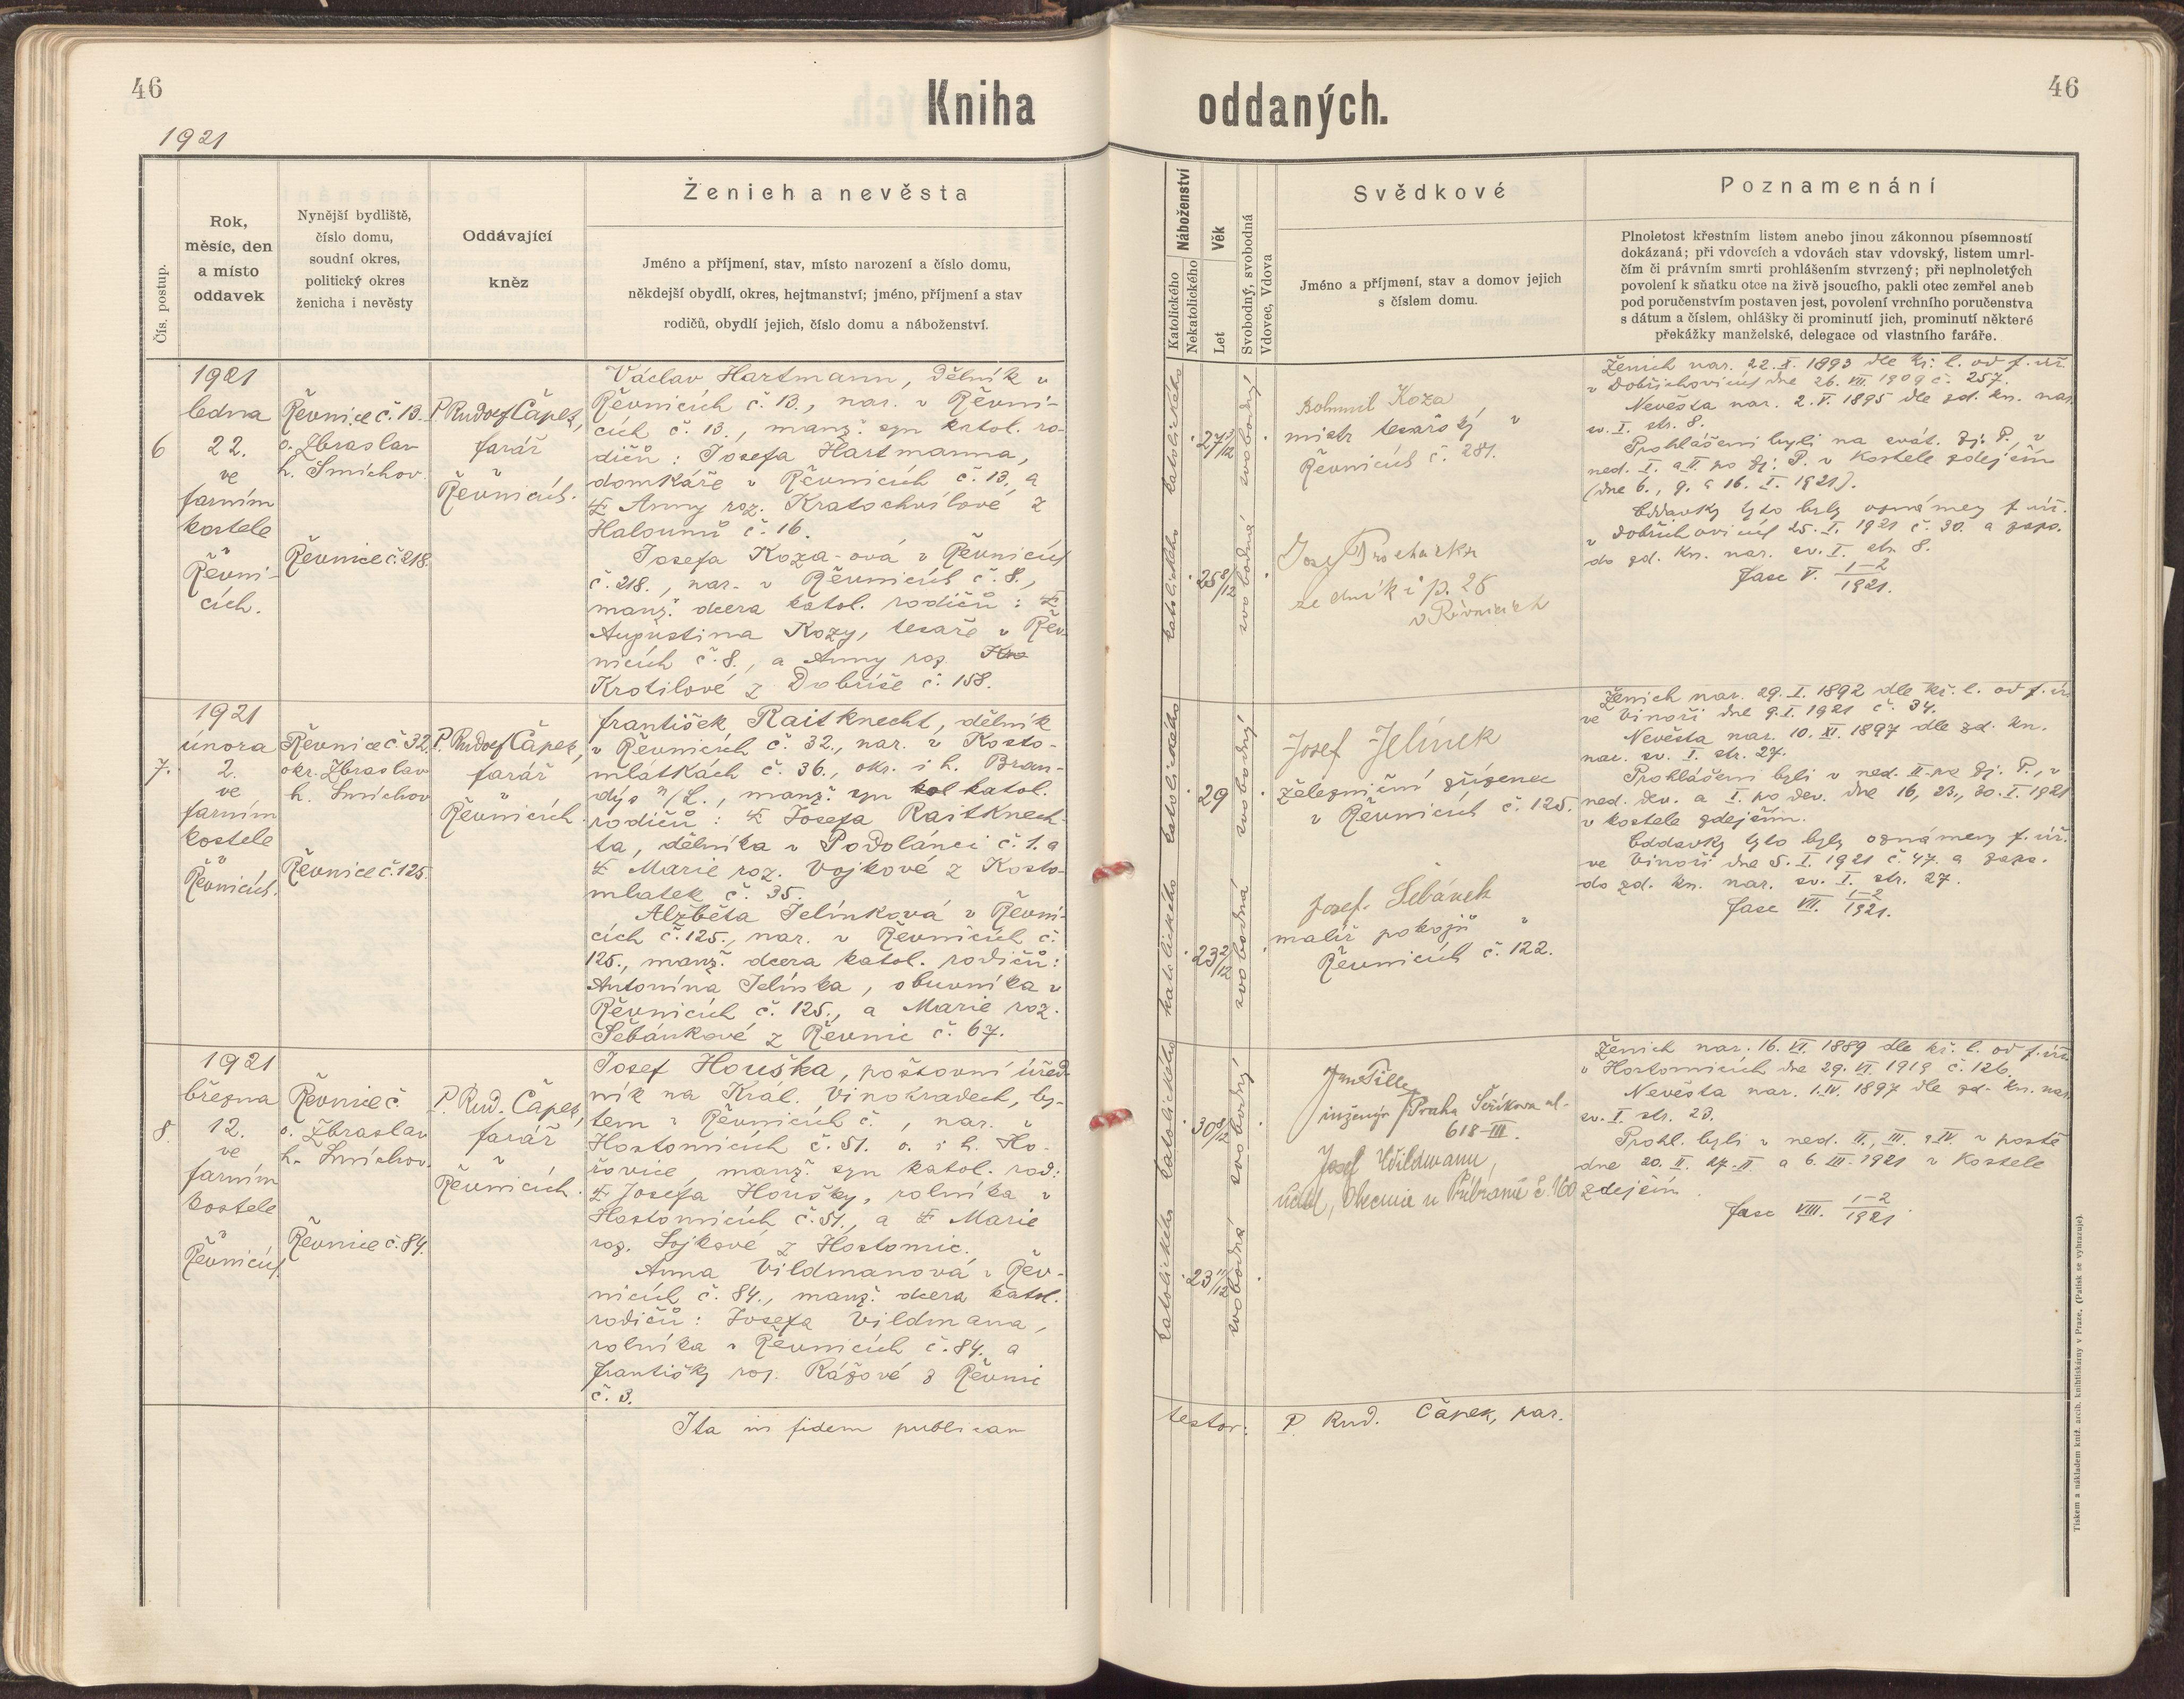 46
Kniha
oddaných.
46
1921
Čís. postup.
Rok,
měsíc, den
a místo
oddavek
Nynější bydliště,
číslo domu,
soudní okres,
politický okres
ženicha i nevěsty
Oddávající
kněz
Ženich a nevěsta
Jméno a příjmení, stav, místo narození a číslo domu,
někdejší obydlí, okres, hejtmanství; jméno, příjmení a stav
rodičů, obydlí jejich, číslo domu a náboženství.
Náboženství
Katolického
Nekatolického
Věk
Let
Svobodný, svobodná
Vdovec, Vdova
Svědkové
Jméno a příjmení, stav a domov jejich
s číslem domu.
Poznamenání
Plnoletost křestním listem anebo jinou zákonnou písemností
dokázaná; při vdovcích a vdovách stav vdovský, listem umrl-
čím či právním smrti prohlášením stvrzený; při neplnoletých
povolení k sňatku otce na živě jsoucího, pakli otec zemřel aneb
pod poručenstvím postaven jest, povolení vrchního poručenstva
s dátum a číslem, ohlášky či prominutí jich, prominutí některé
překážky manželské, delegace od vlastního faráře.
6
1921
ledna
22.
ve
farním
kostele
v
Řevni-
cích.
Řevnice č. 13.
o. Zbraslav
h. Smíchov.
Řevnice č. 218.
P. Rudolf Čápek,
farář
v
Řevnicích.
Václav Hartmann, dělník v
Řevnicích č. 13., nar. v Řevni-
cích č. 13., manž. syn katol. ro-
dičů: Josefa Hartmanna,
domkáře v Řevnicích č. 13, a
Anny roz. Kratochvílové z
Halounů č. 16.
Josefa Koza-ová v Řevnicích
č. 218., nar. v Řevnicích č. 8.,
manž. dcera katol. rodičů:
Augustina Kozy, tesaře v Řev-
nicích č. 8., a Anny roz. Kro
Krotilové z Dobříše č. 158.
katolického
katolického
27 3/12
25 8/12
svobodný
svobodná
Bohumil Koza,
mistr tesařský v
Řevnicích č. 281.
Josef Procházka
zedník čp. 28
v Řevnicích
Ženich nar. 22. X. 1893 dle kř. l. od f. úř.
v Dobřichovicích dne 26. VII. 1909 č. 257.
Nevěsta nar. 2. V. 1895 dle zd. kn. nar.
sv. I. str. 8.
Prohlášeni byli na svát. Zj. P., v
ned. I. a II. po Zj. P. v kostele zdejším
(dne 6., 9. a 16. I. 1921).
Oddavky tyto byly oznámeny f. úř.
v Dobřichovicích 25. I. 1921 č. 30. a zaps.
do zd. kn. nar. sv. I. str. 8.
fasc V. 1-2/1921.
7.
1921
února
2.
ve
farním
kostele
v
Řevnicích.
Řevnice č. 32
okr. Zbraslav
h. Smíchov
Řevnice č. 125.
P. Rudolf Čápek,
farář
v
Řevnicích.
František Raitknecht, dělník
v Řevnicích č. 32., nar. v Kosto-
mlátkách č. 36., okr. i h. Bran-
dýs n/L., manž. syn kol katol.
rodičů: Josefa Raitknech-
ta, dělníka v Podolánci č. 1. a
Marie roz. Vojkové z Kosto-
mlatek č. 35.
Alžběta Jelínková v Řevni-
cích č. 125., nar. v Řevnicích č.
125., manž. dcera katol. rodičů:
Antonína Jelínka, obuvníka v
Řevnicích č. 125., a Marie roz.
Šebánkové z Řevnic č. 67.
katolického
katolického
29
23 2/12
svobodný
svobodná
Josef Jelínek
železniční zřízenec
v Řevnicích č. 125.
Josef Šebánek
malíř pokojů v
Řevnicích č. 122.
Ženich nar. 29. I. 1892 dle kř. l. od f. úř.
ve Vinoři dne 9. I. 1921 č. 34.
Nevěsta nar. 10. XI. 1897 dle zd. kn.
nar. sv. I. str. 27.
Prohlášeni byli v ned. II. po Zj. P., v
ned. dev. a I. po dev. dne 16., 23., 30. I. 1921
v kostele zdejším.
Oddavky tyto byly oznámeny f. úř.
ve Vinoři dne 5. I. 1921 č. 47. a zaps.
do zd. kn. nar. sv. I. str. 27.
fasc VII. 1-2/1921.
8.
1921
března
12.
ve
farním
kostele
v
Řevnicích
Řevnice č.
o. Zbraslav
h. Smíchov.
Řevnice č. 84.
P. Rud. Čápek,
farář
v
Řevnicích.
Josef Houška, poštovní úřed-
ník na Král. Vinohradech, by-
tem v Řevnicích č. , nar. v
Hostomicích č. 51. o. i h. Ho-
řovice, manž. syn katol. rod:
Josefa Houšky, rolníka v
Hostomicích č. 51., a Marie
roz. Sojkové z Hostomic.
Anna Vildmanová v Řev-
nicích č. 84., manž. dcera katol.
rodičů: Josefa Vildmana,
rolníka v Řevnicích č. 84. a
Františky roz. Rážové z Řevnic
č. 3.
katolického
katolického
30 8/12
23 11/12
svobodný
svobodná
Jan Tille
inženýr Praha Šeříkova ul-
618-III.
Josef Wildmann,
učitel, Obecnice u Příbramě č. 160
Ženich nar. 16. VI. 1889 dle kř. l. od f. úř.
v Hostomicích dne 29. VI. 1919 č. 126.
Nevěsta nar. 1. IV. 1897 dle zd. kn. nar.
sv. I. str. 23.
Prohl. byli v ned. II., III. a IV. v postě
dne 20. II. 27. II. a 6. III. 1921 v kostele
zdejším.
fasc VIII. 1-2/1921.
Ita in fidem publicam
testor: P. Rud. Čápek, par.
Tiskem a nákladem kníž. arcib. knihtiskárny v Praze. (Patisk se vyhrazuje)